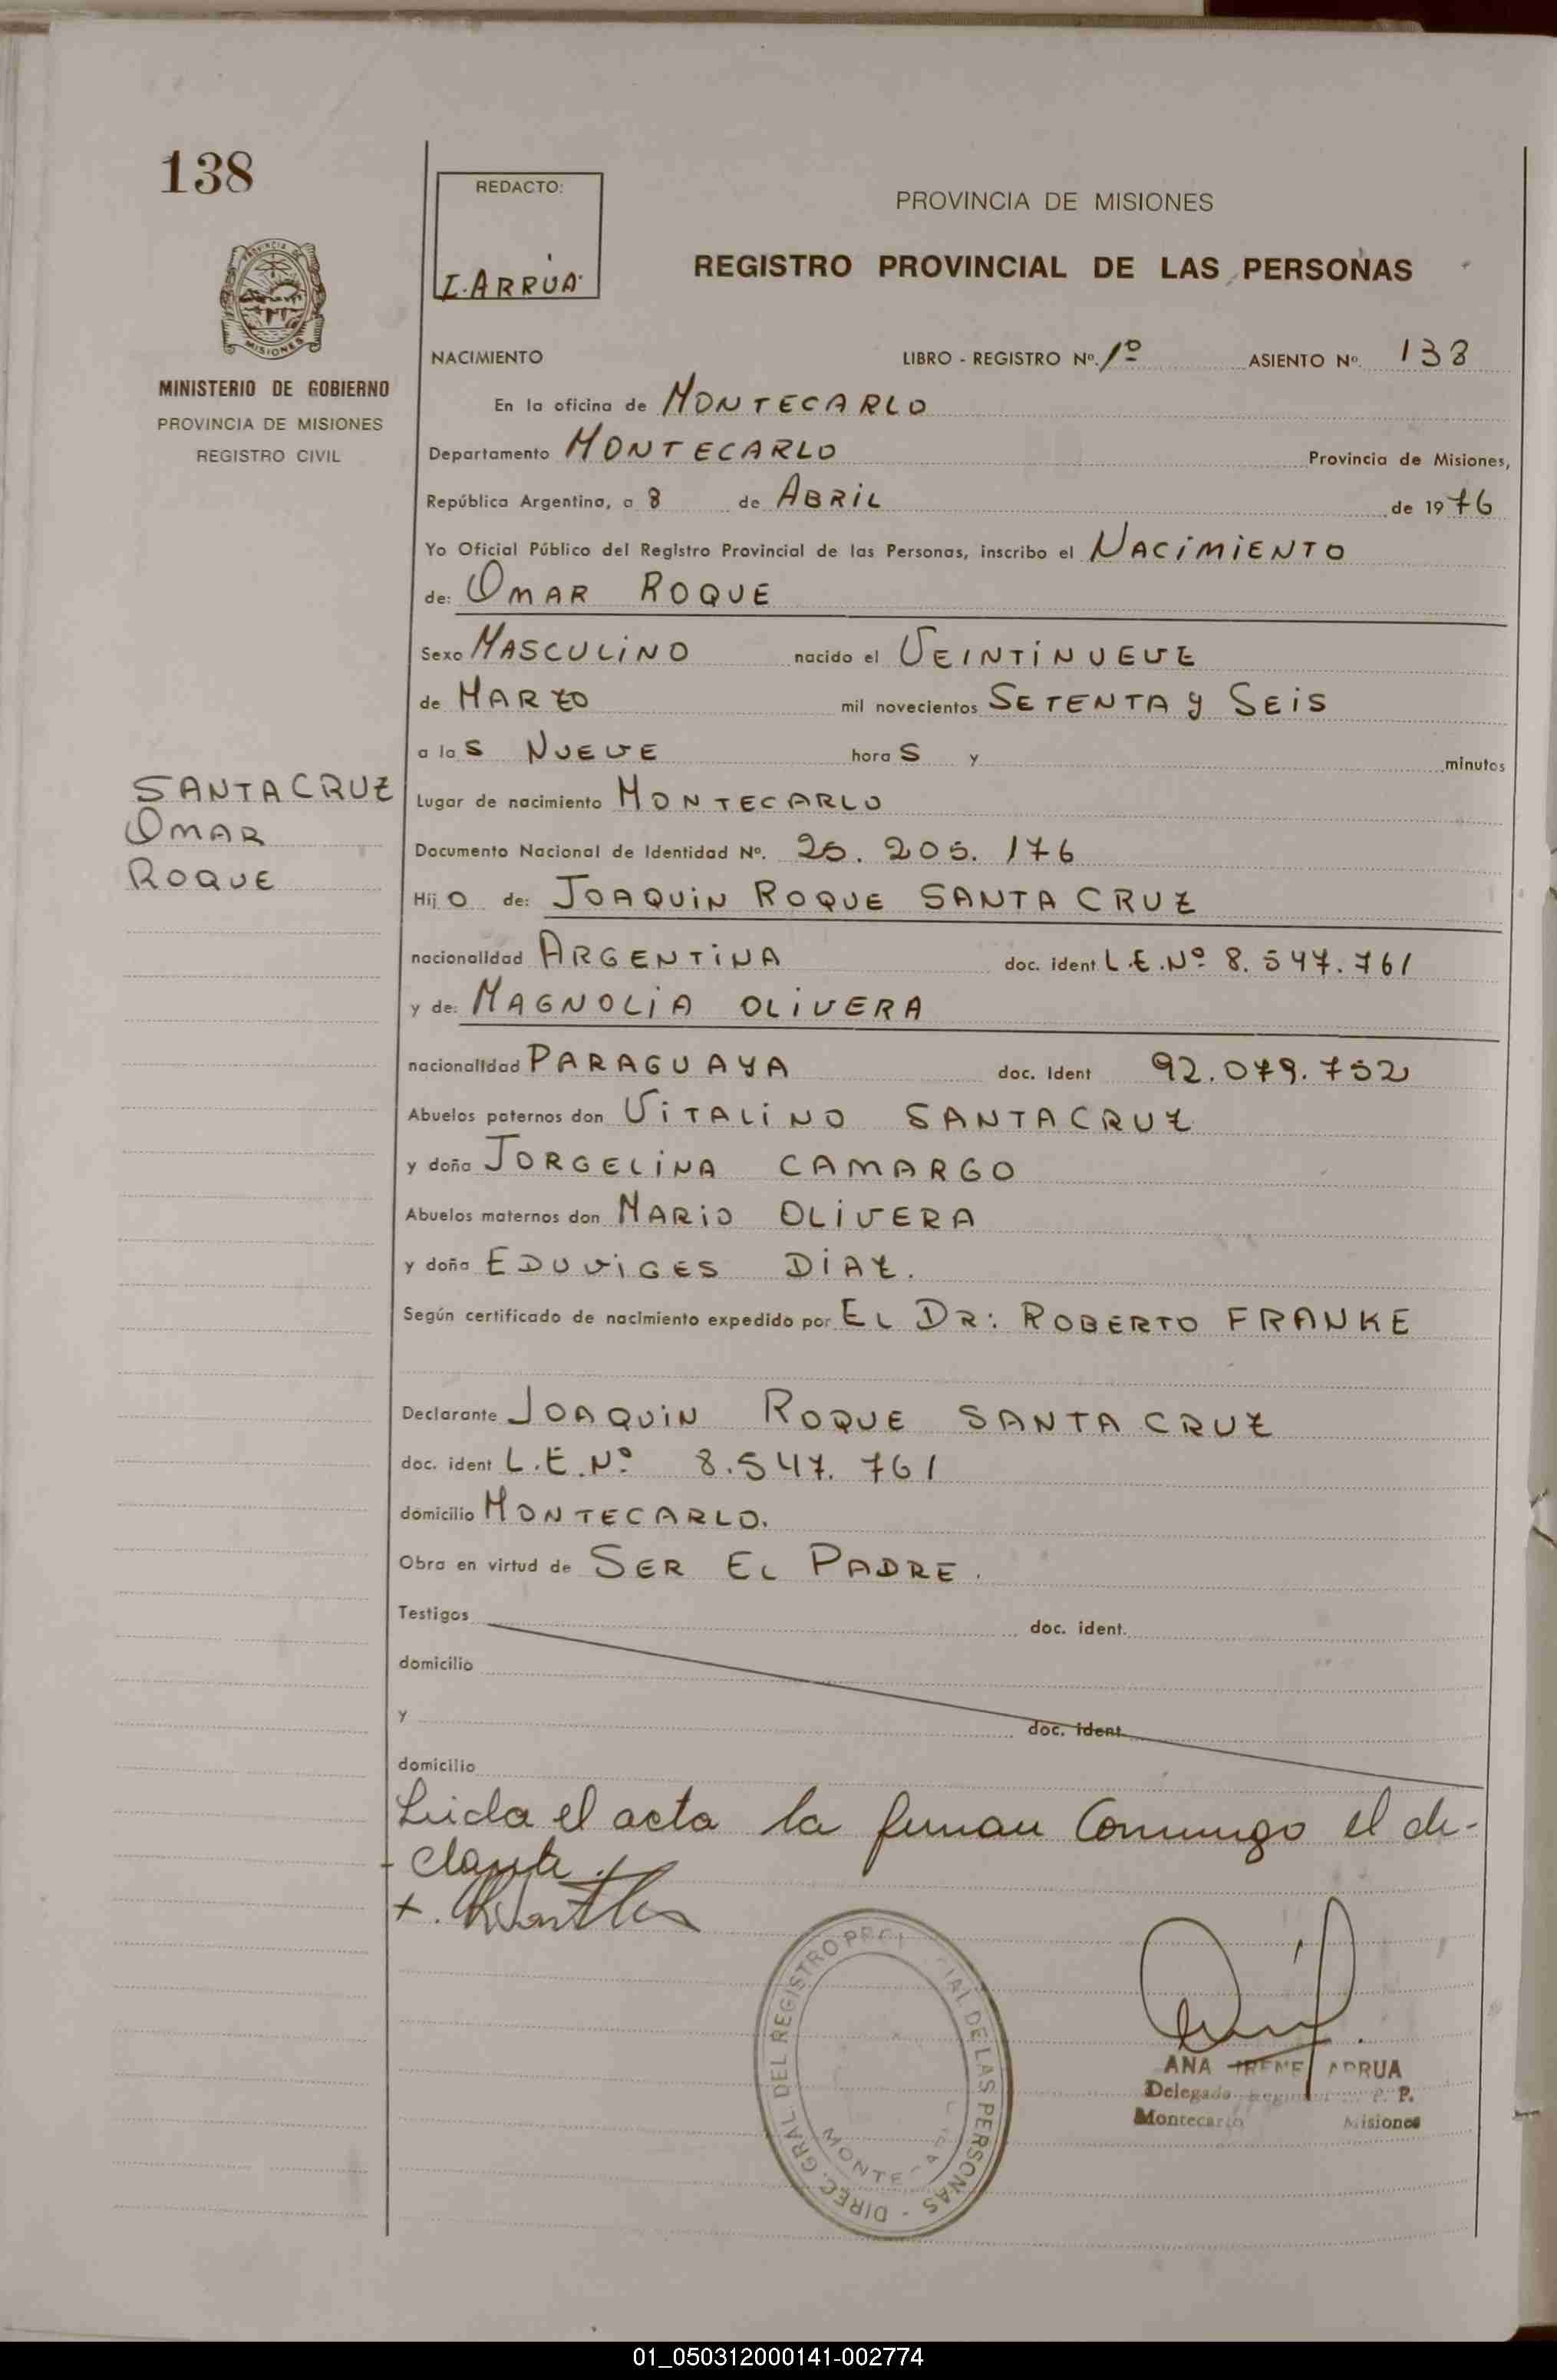 138
REDACTO:
I. ARRUA
PROVINCIA DE MISIONES
REGISTRO PROVINCIAL DE LAS PERSONAS
PROVINCIA DE
MISIONES
MINISTERIO DE GOBIERNO
PROVINCIA DE MISIONES
REGISTRO CIVIL
NACIMIENTO LIBRO - REGISTRO Nº. 1º ASIENTO Nº. 138
En la oficina de MONTECARLO
Departamento MONTECARLO Provincia de Misiones,
República Argentina, a 8 de ABRIL de 1976
Yo Oficial Público del Registro Provincial de las Personas, inscribo el NACIMIENTO
de: OMAR ROQUE
Sexo MASCULINO nacido el VEINTINUEVE
de MARZO mil novecientos SETENTA y SEIS
a las NUEVE horas y minutos
SANTACRUZ
OMAR
ROQUE
Lugar de nacimiento MONTECARLO
Documento Nacional de Identidad Nº. 25.205.176
Hijo de: JOAQUIN ROQUE SANTA CRUZ
nacionalidad ARGENTINA doc. ident L.E.Nº 8.547.761
y de: MAGNOLIA OLIVERA
nacionalidad PARAGUAYA doc. Ident 92.079.752
Abuelos paternos don VITALINO SANTACRUZ
y doña JORGELINA CAMARGO
Abuelos maternos don MARIO OLIVERA
y doña EDUVIGES DIAZ.
Según certificado de nacimiento expedido por EL DR: ROBERTO FRANKE
Declarante JOAQUIN ROQUE SANTA CRUZ
doc. ident L.E.Nº 8.547.761
domicilio MONTECARLO.
Obra en virtud de SER EL PADRE.
Testigos doc. ident.
domicilio
y doc. ident
domicilio
Leida el acta la firman Conmigo el de-
clarante.
DIREC. GRAL. DEL REGISTRO DE LAS PERSONAS
MONTECARLO
ANA IRENE ARRUA
Delegada P.
Montecarlo Misiones
01_050312000141-002774